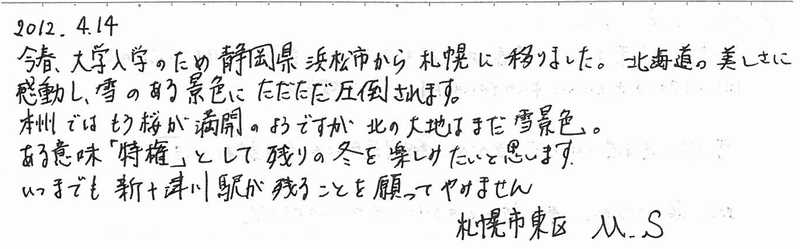 2012.4.14
今春、大学入学のため静岡県浜松市から札幌に移りました。北海道の美しさに
感動し、雪のある景色にただただ圧倒されます。
本州ではもう桜が満開のようですが北の大地はまだ雪景色。
ある意味「特権」として残りの冬を楽しみたいと思います
いつまでも新十津川駅が残ることを願ってやみません
札幌市東区 M.S